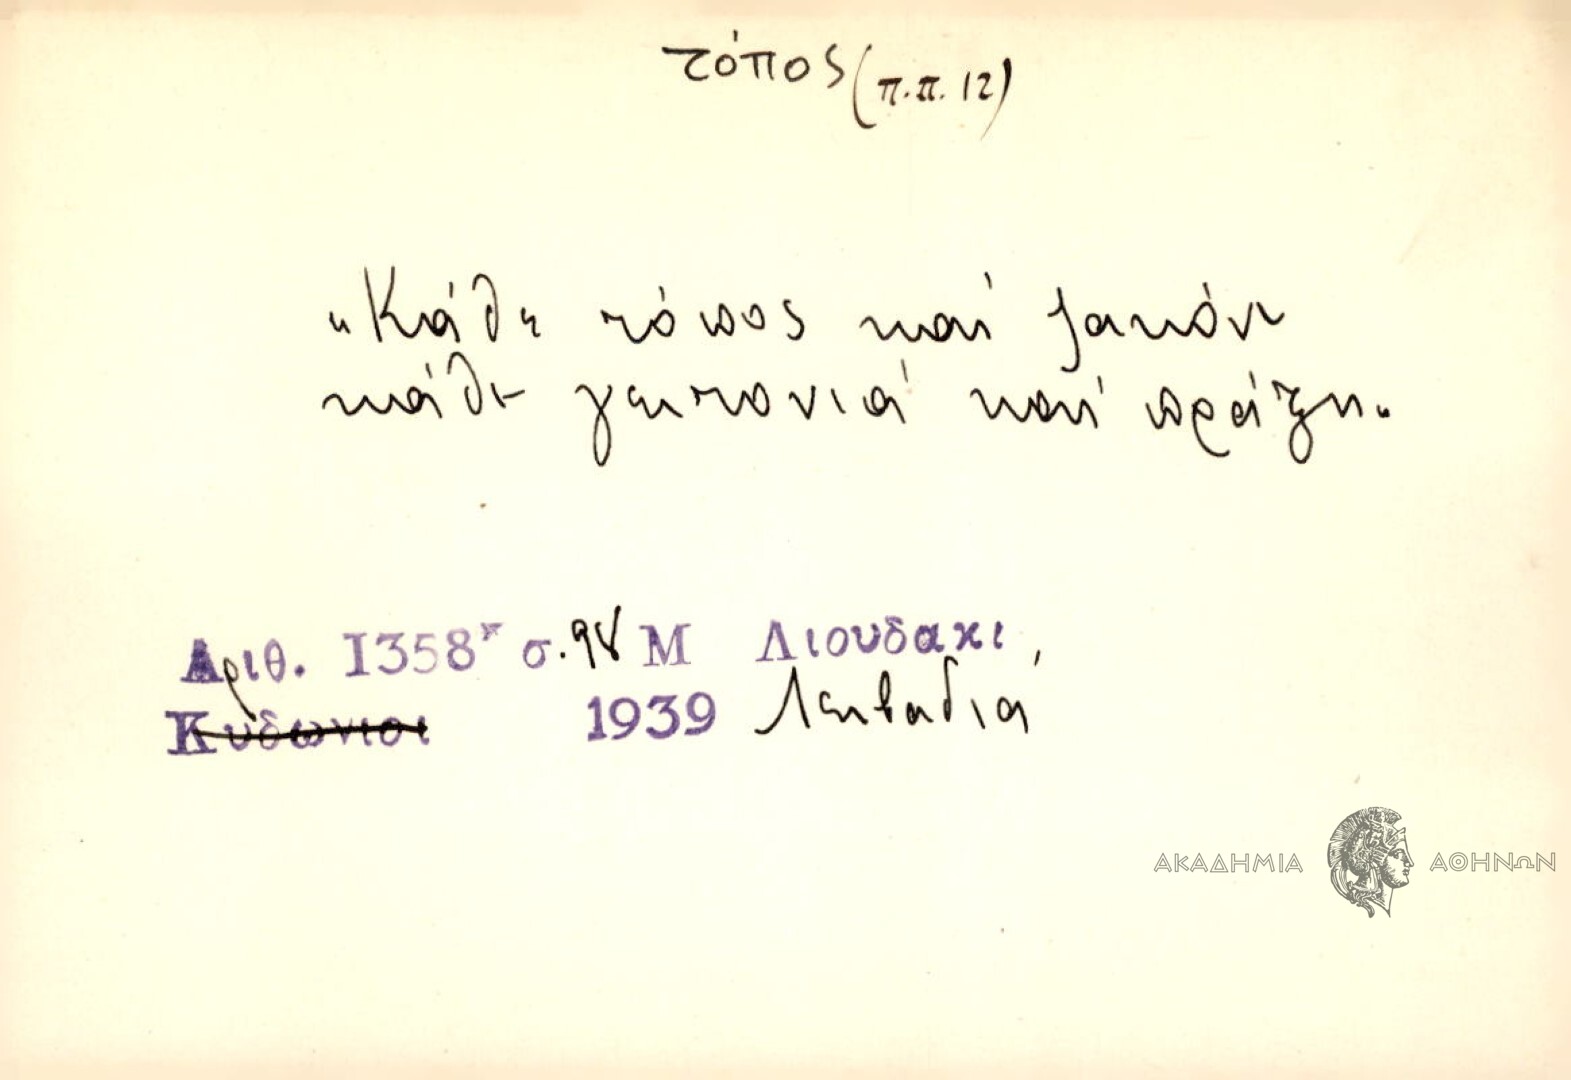 τόπος (π.π. 12)
«Κάθε τόπος καί ζακόνι
κάθε γειτονιά καί πράξη»
Αριθ. 1358 σ. 98 Μ Λιουδακι,
Κυδωνιαι 1939 Λειβαδιά
ΑΚΑΔΗΜΙΑ ΑΘΗΝΩΝ